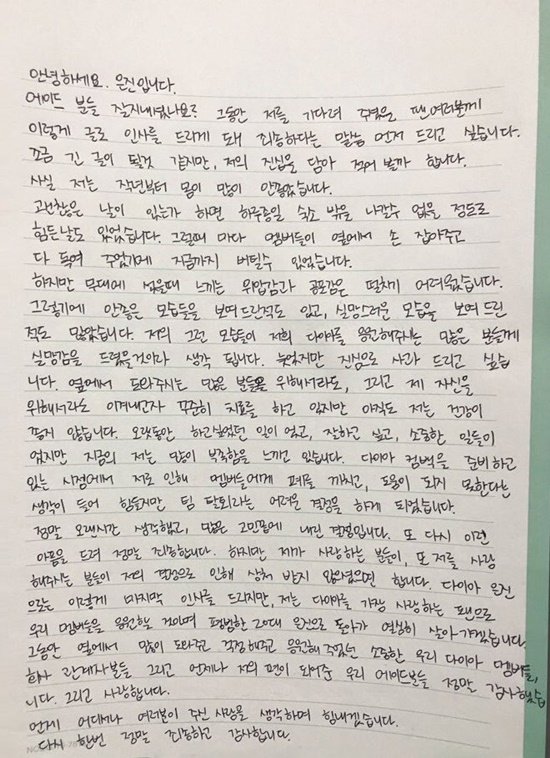 안녕하세요. 은진입니다.
에이드 분들 잘지내셨나요? 그동안 저를 기다려 주셨을 텐데 여러분께
이렇게 글로 인사를 드리게 돼 죄송하다는 말씀 먼저 드리고 싶습니다.
조금 긴 글이 될것 같지만, 저의 진심을 담아 적어 볼까 합니다.
사실 저는 작년부터 몸이 많이 안좋았습니다.
괜찮은 날이 있는가 하면 하루종일 숙소 밖을 나갈수 없을 정도로
힘든날도 있었습니다. 그럴때 마다 멤버들이 옆에서 손 잡아주고
다 독여 주었기에 지금까지 버틸수 있었습니다.
하지만 무대에 섰을때 느끼는 위압감과 공포감은 떨치기 어려웠습니다.
그렇기에 안좋은 모습들을 보여드린적도 있고, 실망스러운 모습을 보여 드린
적도 많았습니다. 저의 그런 모습들이 저희 다이아를 응원해주시는 많은 분들께
실망감을 드렸을것이라 생각 됩니다. 늦었지만 진심으로 사과 드리고 싶습
니다. 옆에서 도와주시는 많은 분들을 위해서라도, 그리고 제 자신을
위해서라도 이겨내고자 꾸준히 치료를 하고 있지만 아직도 저는 건강이
좋지 않습니다. 오랫동안 하고싶었던 일이 었고, 잘하고 싶고, 소중한 일들이
었지만 지금의 저는 많이 부족함을 느끼고 있습니다. 다이아 컴백을 준비하고
있는 시점에서 저로 인해 멤버들에게 폐를 끼치고, 도움이 되지 못한다는
생각이 들어 힘들지만 팀 탈퇴라는 어려운 결정을 하게 되었습니다.
정말 오랜시간 생각했고, 많은 고민끝에 내린 결정입니다. 또 다시 이런
아픔을 드려 정말 죄송합니다. 하지만 제가 사랑하는 분들이, 또 저를 사랑
해주시는 분들이 저의 결정으로 인해 상처 받지 않으셨으면 합니다. 다이아 은진
으로는 이렇게 마지막 인사를 드리지만, 저는 다이아를 가장 사랑하는 팬으로
우리 멤버들을 응원할 것이며 평범한 20대 은진으로 돌아가 열심히 살아가겠습니다.
그동안 옆에서 많이 도와주고 걱정해주고 응원해 주었던 소중한 우리 다이아 멤버들,
회사 관계자분들 그리고 언제나 저의 편이 되어준 우리 에이드분들 정말 감사했습
니다. 그리고 사랑합니다.
언제 어디서나 여러분이 주신 사랑을 생각하며 힘내겠습니다.
다시 한번 정말 죄송하고 감사합니다.